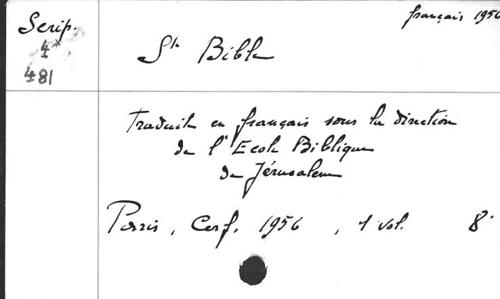 Scrip.
4°
481
français 1956
Ste Bible
Traduite en français sous la direction
de l'Ecole Biblique
de Jérusalem
Paris, Cerf, 1956, 1 vol. 8°